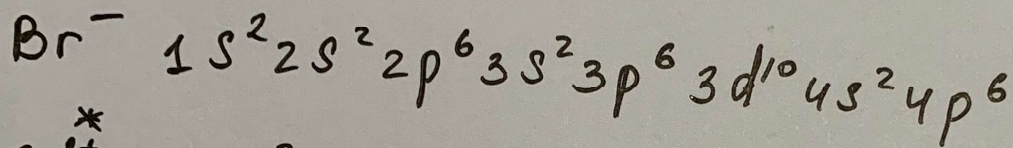 Br⁻ 1s²2s²2p⁶3s²3p⁶3d¹⁰4s²4p⁶
*